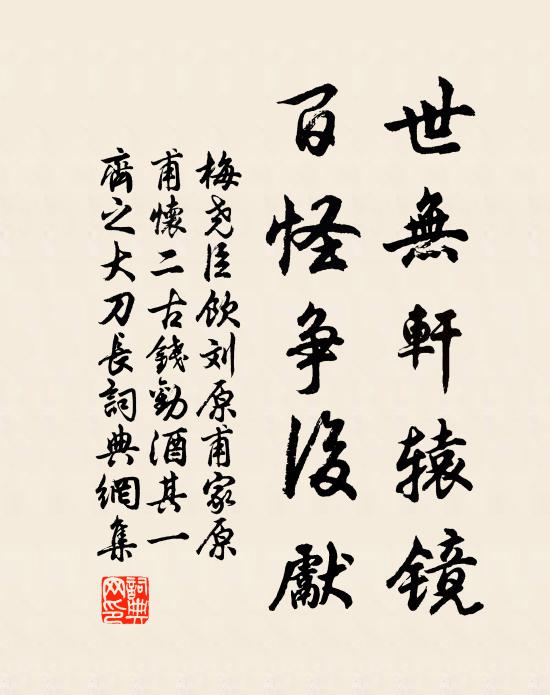 世無軒辕镜
百怪争後獻
梅尧臣飲刘原甫家原
甫懷二古錢勸酒其一
齊之大刀長詞典網集
詞典
网印